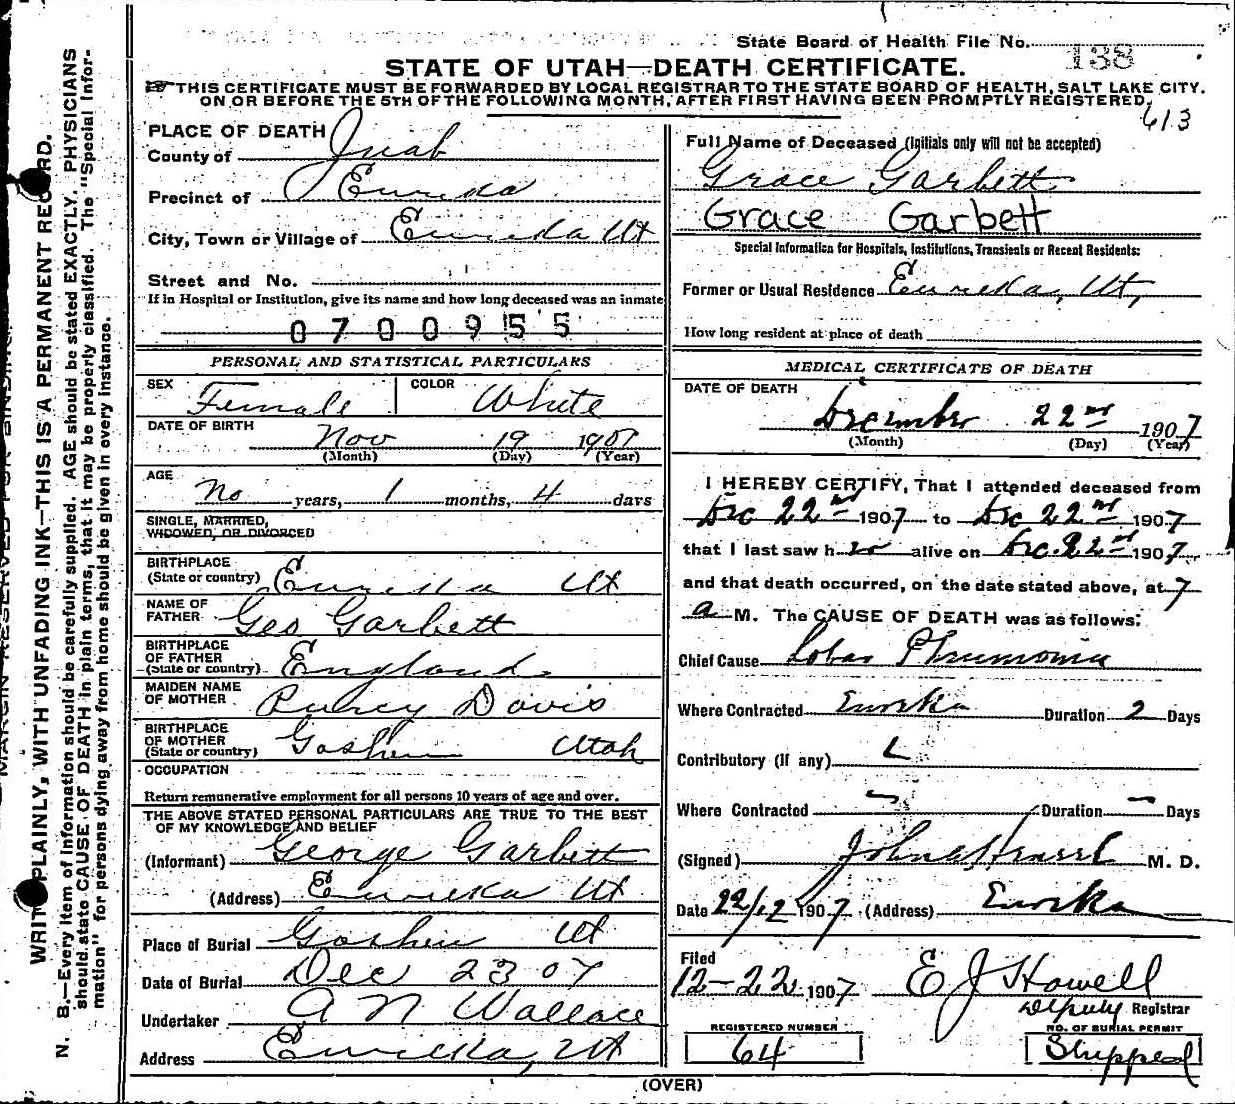 State Board of Health File No. 138
STATE OF UTAH—DEATH CERTIFICATE.
THIS CERTIFICATE MUST BE FORWARDED BY LOCAL REGISTRAR TO THE STATE BOARD OF HEALTH, SALT LAKE CITY.
ON OR BEFORE THE 5TH OF THE FOLLOWING MONTH, AFTER FIRST HAVING BEEN PROMPTLY REGISTERED.
613
PLACE OF DEATH
County of Juab
Precinct of Eureka
City, Town or Village of Eureka Ut
Street and No.
If in Hospital or Institution, give its name and how long deceased was an inmate
0700955
PERSONAL AND STATISTICAL PARTICULARS
SEX Female COLOR White
DATE OF BIRTH Nov 19 1907
(Month) (Day) (Year)
AGE No years, 1 months, 4 days
SINGLE, MARRIED,
WIDOWED, OR DIVORCED
BIRTHPLACE
(State or country) Eureka Ut
NAME OF
FATHER Geo Garbett
BIRTHPLACE
OF FATHER
(State or country) England
MAIDEN NAME
OF MOTHER Davis
BIRTHPLACE
OF MOTHER
(State or country) Goshen Utah
OCCUPATION
Return remunerative employment for all persons 10 years of age and over.
THE ABOVE STATED PERSONAL PARTICULARS ARE TRUE TO THE BEST
OF MY KNOWLEDGE AND BELIEF
(Informant) George Garbett
(Address) Eureka Ut
Place of Burial Goshen Ut
Date of Burial Dec 23 07
Undertaker A N Wallace
Address Eureka, Ut
Full Name of Deceased (Initials only will not be accepted)
Grace Garbett
Grace Garbett
Special Information for Hospitals, Institutions, Transients or Recent Residents:
Former or Usual Residence Eureka, Ut,
How long resident at place of death
MEDICAL CERTIFICATE OF DEATH
DATE OF DEATH
December 22nd 1907
(Month) (Day) (Year)
I HEREBY CERTIFY, That I attended deceased from
Dec 22nd 1907 to Dec 22nd 1907
that I last saw h er alive on Dec. 22nd 1907
and that death occurred, on the date stated above, at 7
a M. The CAUSE OF DEATH was as follows:
Chief Cause Lobar Pneumonia
Where Contracted Eureka Duration 2 Days
Contributory (if any)
Where Contracted — Duration — Days
(Signed) John M. D.
Date 22/12 1907 (Address) Eureka
Filed
12-22 1907 E J Howell
Deputy Registrar
REGISTERED NUMBER
64
NO. OF BURIAL PERMIT
Shipped
(OVER)
MARGIN RESERVED FOR BINDING
WRITE PLAINLY, WITH UNFADING INK—THIS IS A PERMANENT RECORD.
N. B.—Every item of information should be carefully supplied. AGE should be stated EXACTLY. PHYSICIANS
should state CAUSE OF DEATH in plain terms, that it may be properly classified. The "Special Infor-
mation" for persons dying away from home should be given in every instance.